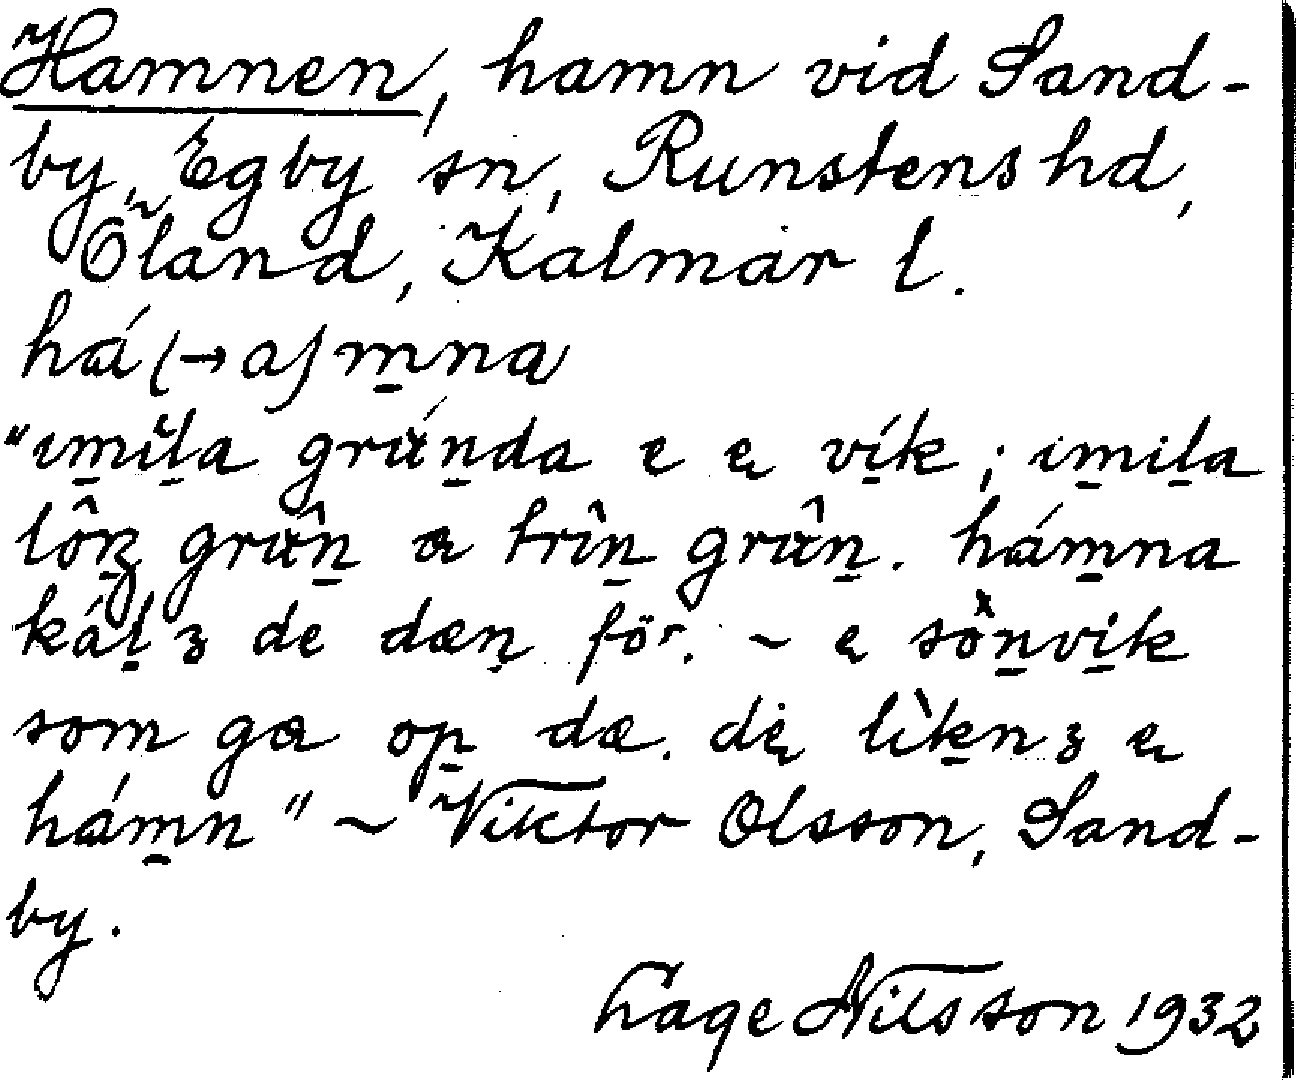 Hamnen, hamn vid Sand-
by, Egby sn, Runstens hd,
Öland, Kalmar l.
há (→ a) m̲na
"ım̲il̲a grán̲da e ę ví̲k; ım̲il̲a
lôn̲ʒ grân̲ a trîn̲ grân̲. hám̲na
kál̲ʒ de dæn̲ för. ~ ę sön̲vi̲k
som ga op̲ dæ. dę lìk̲nʒ ę
hám̲n" ~ Viktor Olsson, Sand-
by.
Lage Nilsson 1932